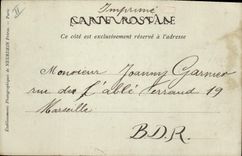 Imprimé
CARTE POSTALE
Ce côté est exclusivement réservé à l'adresse
Monsieur Joanny Garnier
rue de l'abbé Ferraud 19
Marseille
B.D.R.
Etablissements Photographiques de NEURDEIN Frères. — Paris